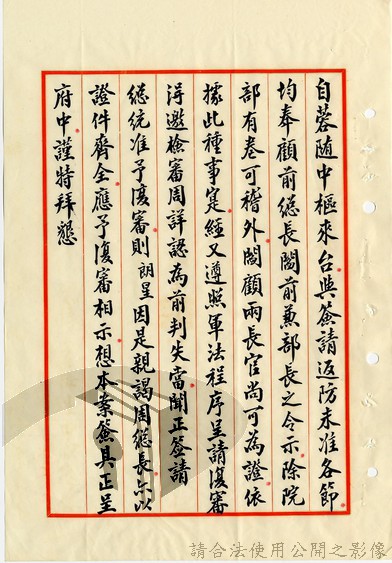 自蓉隨中樞來台與簽請返防未准各節
均奉顧前總長閻前兼部長之令示除院
部有卷可稽外閻顧兩長官尚可為證依
據此種事寔經又遵照軍法程序呈請復審
淂邀檢審周詳認為前判失當聞正簽請
總統准予復審則朗星因是親謁周總長点以
證件齊全應予復審相示想本案簽具正呈
府中謹特拜懇
請合法使用公開之影像